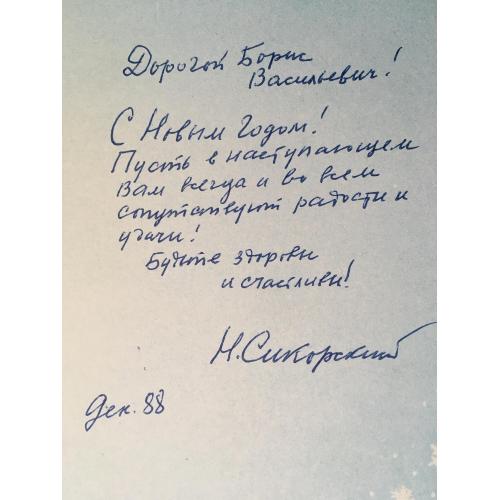 Дорогой Борис
Васильевич!
С Новым Годом!
Пусть в наступающем
Вам всегда и во всем
сопутствуют радости и
удачи!
Будьте здоровы
и счастливы!
Н. Сикорский
Дек. 88